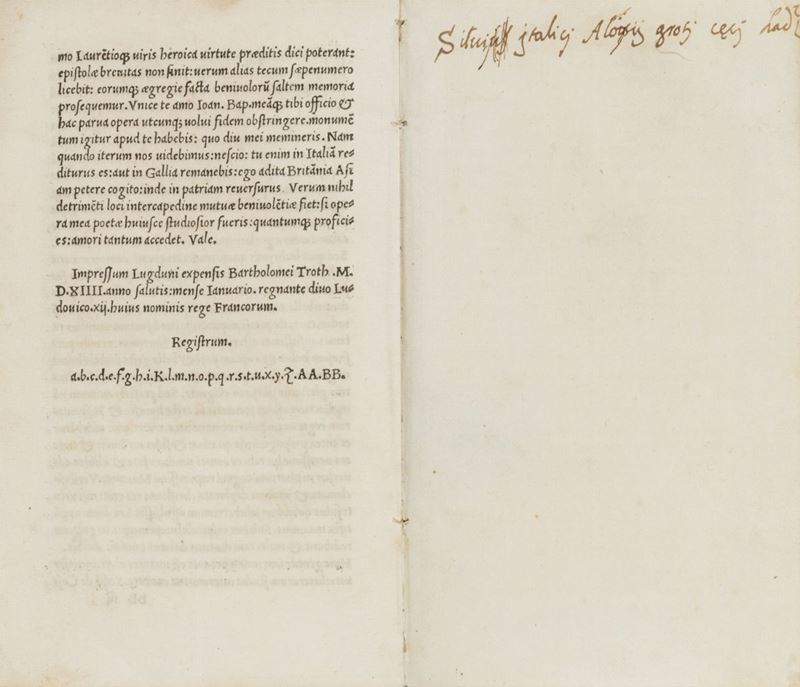 mo Laurẽtioqꝫ uiris heroica uirtute præditis dici poterant:
epistolæ breuitas non sinit: uerum alias tecum sæpenumero
licebit: eorumqꝫ ægregie facta beniuolorũ saltem memoria
prosequemur. Vnice te amo Ioan. Bap. meãqꝫ tibi officio &
hac parua opera utcunqꝫ uolui fidem obstringere. monumẽ
tum igitur apud te habebis: quo diu mei memineris. Nam
quando iterum nos uidebimus: nescio: tu enim in Italiã re-
diturus es: aut in Gallia remanebis: ego adita Britãnia Asi
am petere cogito: inde in patriam reuersurus. Verum nihil
detrimẽti loci intercapedine mutuæ beniuolẽtiæ fiet: si ope-
ra mea poetæ huiusce studiosior fueris: quantumqꝫ proficie-
es: amori tantum accedet. Vale.
Impressum Lugduni expensis Bartholomei Troth .M.
D.XIIII. anno salutis: mense Ianuario. regnante diuo Lu-
douico .xij. huius nominis rege Francorum.
Registrum.
a.b.c.d.e.f.g.h.i.K.l.m.n.o.p.q.r.s.t.u.x.y.ꝫ.AA.BB.
jtalicj